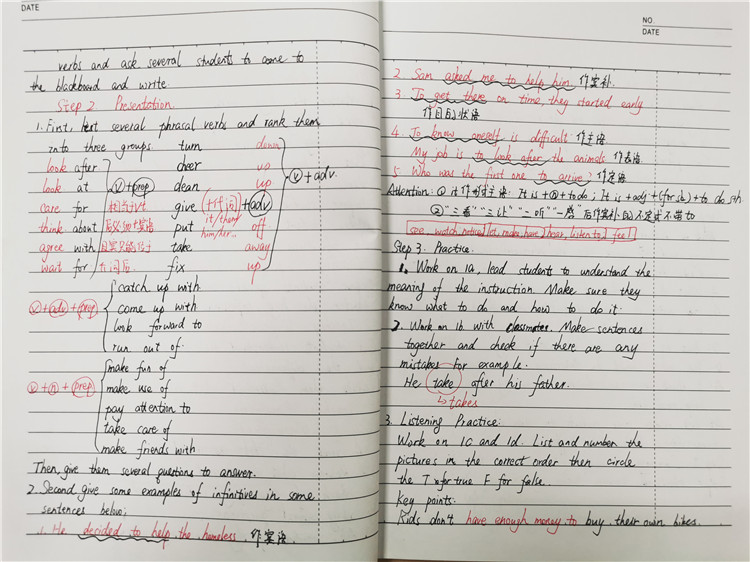 DATE
verbs and ask several students to come to
the blackboard and write.
Step 2 Presentation.
1. First, list several phrasal verbs and rank them
into three groups
look after
look at
care for
think about
agree with
wait for
v + prep
相当于vt
后必加宾语
宾只能位于
介词后
turn down
cheer up
clean up
give (代词) + adv
it/them
him/her..
put off
take away
fix up
v + adv
v + adv + prep
catch up with
come up with
look forward to
run out of
v + n + prep
make fun of
make use of
pay attention to
take care of
make friends with
Then give them several questions to answer.
2. Second give some examples of infinitives in some
sentences below:
1. He decided to help the homeless. 作宾语
NO.
DATE
2 Sam asked me to help him. 作宾补.
3 To get there on time, they started early
作目的状语
4. To know oneself is difficult 作主语
My job is to look after the animals 作表语
5. Who was the first one to arrive? 作定语
Attention: ① it作形式主语: It is + n + to do; It is + adj + (for sb) + to do sth.
②"三看""三让""一听""一感"后作宾补 不定式不带to
see, watch, notice let, make, have hear, listen to feel
Step 3. Practice.
1. Work on 1a, lead students to understand the
meaning of the instruction. Make sure they
know what to do and how to do it.
2. Work on 1b with classmates. Make sentences
together and check if there are any
mistakes for example.
He take after his father.
takes
3. Listening Practice:
Work on 1c and 1d. List and number the
pictures in the correct order then circle
the T for true F for false.
Key points.
Kids don't have enough money to buy their own bikes.